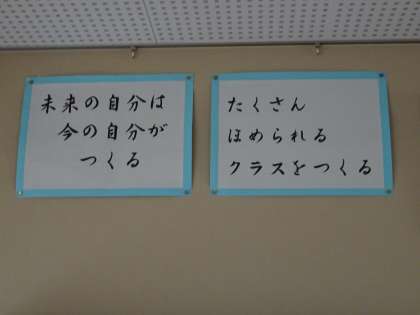 未来の自分は
今の自分が
つくる
たくさん
ほめられる
クラスをつくる